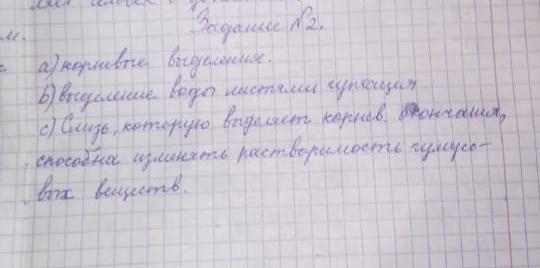 Задание №2.
м.
а) корневые выделения.
b) выделение воды листьями гуттация
с) Слизь, которую выделяет корнев. окончания,
способна изменять растворимость гумусо-
вых веществ.